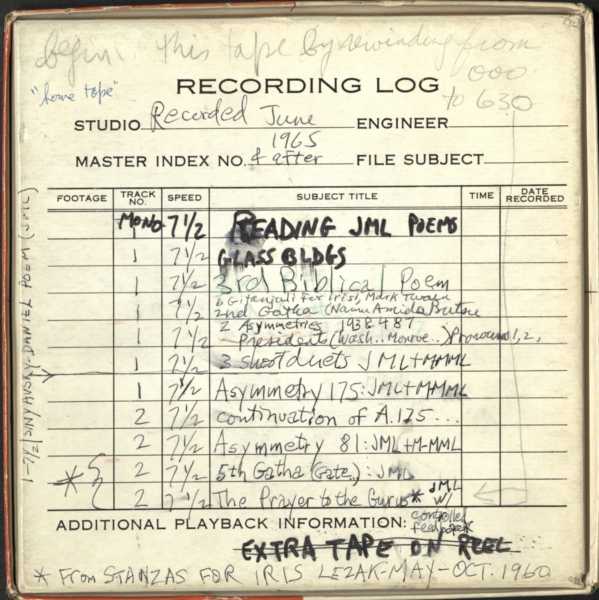 begin: this tape by rewinding from
000
to 630
"home tape"
RECORDING LOG
STUDIO Recorded June ENGINEER
1965
MASTER INDEX NO. & after FILE SUBJECT
FOOTAGE TRACK NO. SPEED SUBJECT TITLE TIME DATE RECORDED
MONO 7 1/2 READING JML POEMS
1 7 1/2 GLASS BLDGS
1 7 1/2 3rd Biblical Poem
6 Gitanjali for Iris, Mark Twain
1 7 1/2 2nd Gatha (Namu Amida Butsu
2 Asymmetries 193 & 487
1 7 1/2 Presidents (Wash... Monroe...) Pronouns 1, 2,
1 7 1/2 3 short duets JML+MMML
1 7 1/2 Asymmetry 175: JML+MMML
2 7 1/2 continuation of A.175...
2 7 1/2 Asymmetry 81: JML+M-MML
2 7 1/2 5th Gatha (Gate): JML
* { 2 7 1/2 The Prayer to the Gurus* JML
W/
controlled
feedback
ADDITIONAL PLAYBACK INFORMATION:
EXTRA TAPE ON REEL
* From STANZAS FOR IRIS LEZAK-MAY-OCT. 1960
1-7 1/2 SINYAVSKY-DANIEL POEM (JML)